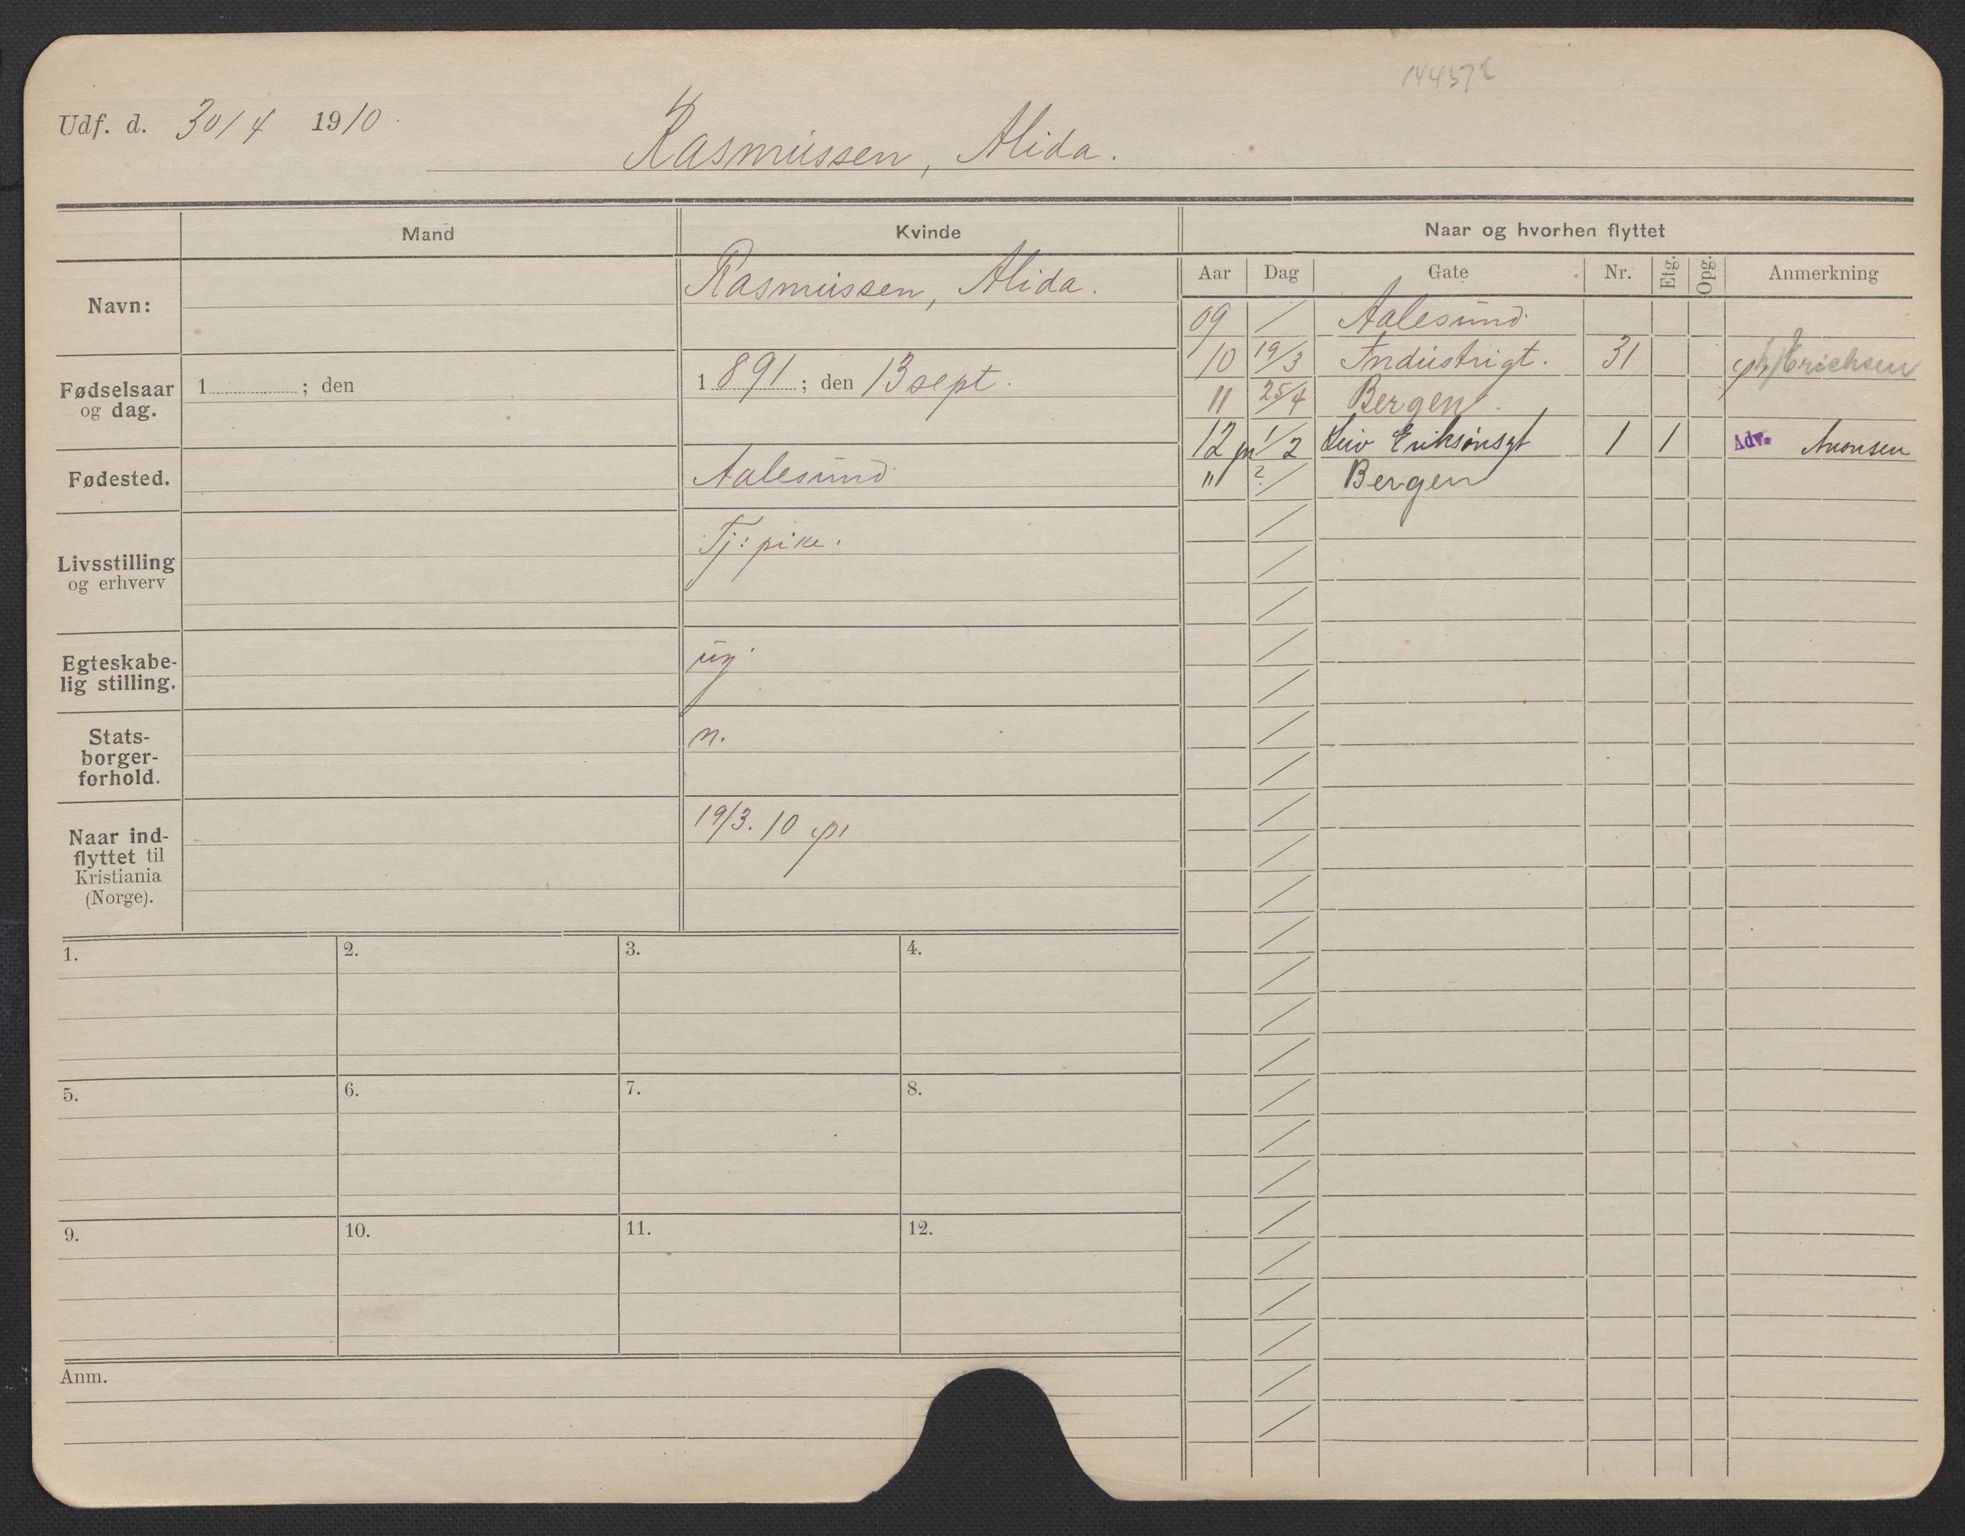 144372
Udf. d. 30/4 1910.
Rasmussen, Alida.
Mand
Kvinde
Naar og hvorhen flyttet
Navn:
Rasmussen, Alida.
Fødselsaar og dag.
1 ; den
1891; den 13 sept.
Fødested.
Aalesund
Livsstilling og erhverv
Tj: pike.
Egteskabe-
lig stilling.
ug
Stats-
borger-
forhold.
n.
Naar ind-
flyttet til
Kristiania
(Norge).
19/3. 10
Aar Dag Gate Nr. Etg. Opg. Anmerkning
09 / Aalesund
10 19/3 Industrigt. 31 Erichsen
11 25/4 Bergen.
12 1/2 Leiv Eriksønsgt 1 1 Adv. Aronsen
" ?/ Bergen
1. 2. 3. 4.
5. 6. 7. 8.
9. 10. 11. 12.
Anm.